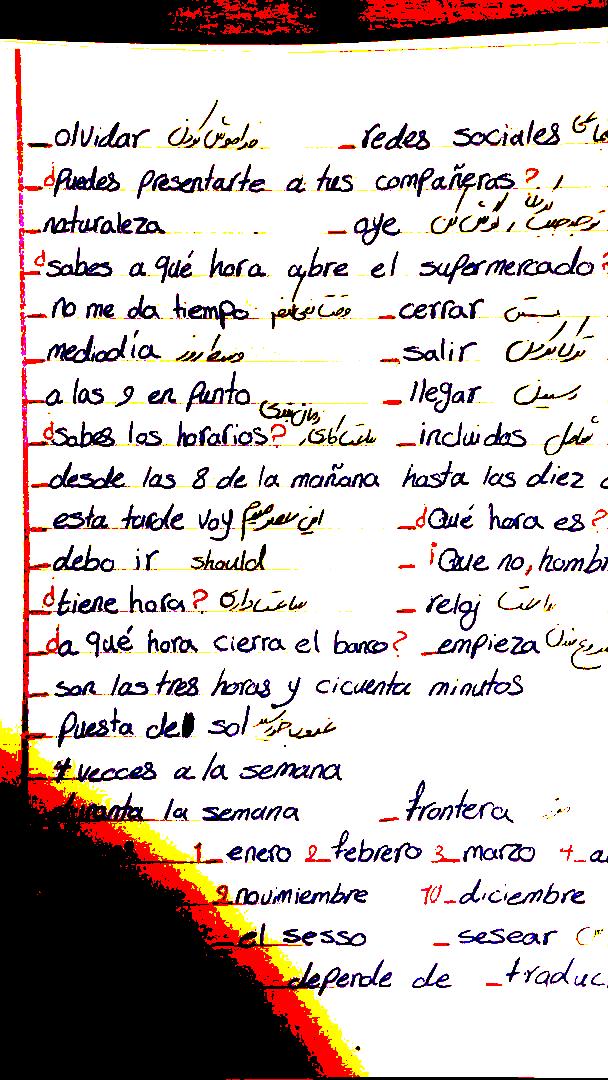 _olvidar فراموش کردن _redes sociales
_¿Puedes presentarte a tus compañeros?
_naturaleza _oye
_¿sabes a qué hora abre el supermercado?
_no me da tiempo _cerrar بستن
_mediodía وسط روز _salir ترک کردن
_a las 9 en punto _llegar رسیدن
_¿sabes los horarios? ساعت کاری، زمان بندی _incluidas شامل
_desde las 8 de la mañana hasta las diez
_esta tarde voy این عصر میرم _¿Qué hora es?
_debo ir should _¡Que no, hombr
_¿tiene hora? ساعت داری _reloj ساعت
_¿a qué hora cierra el banco? _empieza شروع شدن
_son las tres horas y cicuenta minutos
_Puesta del sol غروب خورشید
_4 vecces a la semana
duranta la semana _frontera
1_enero 2_febrero 3_marzo 4_a
9 novimiembre 10_diciembre
_el sesso _sesear
_depende de _traduc